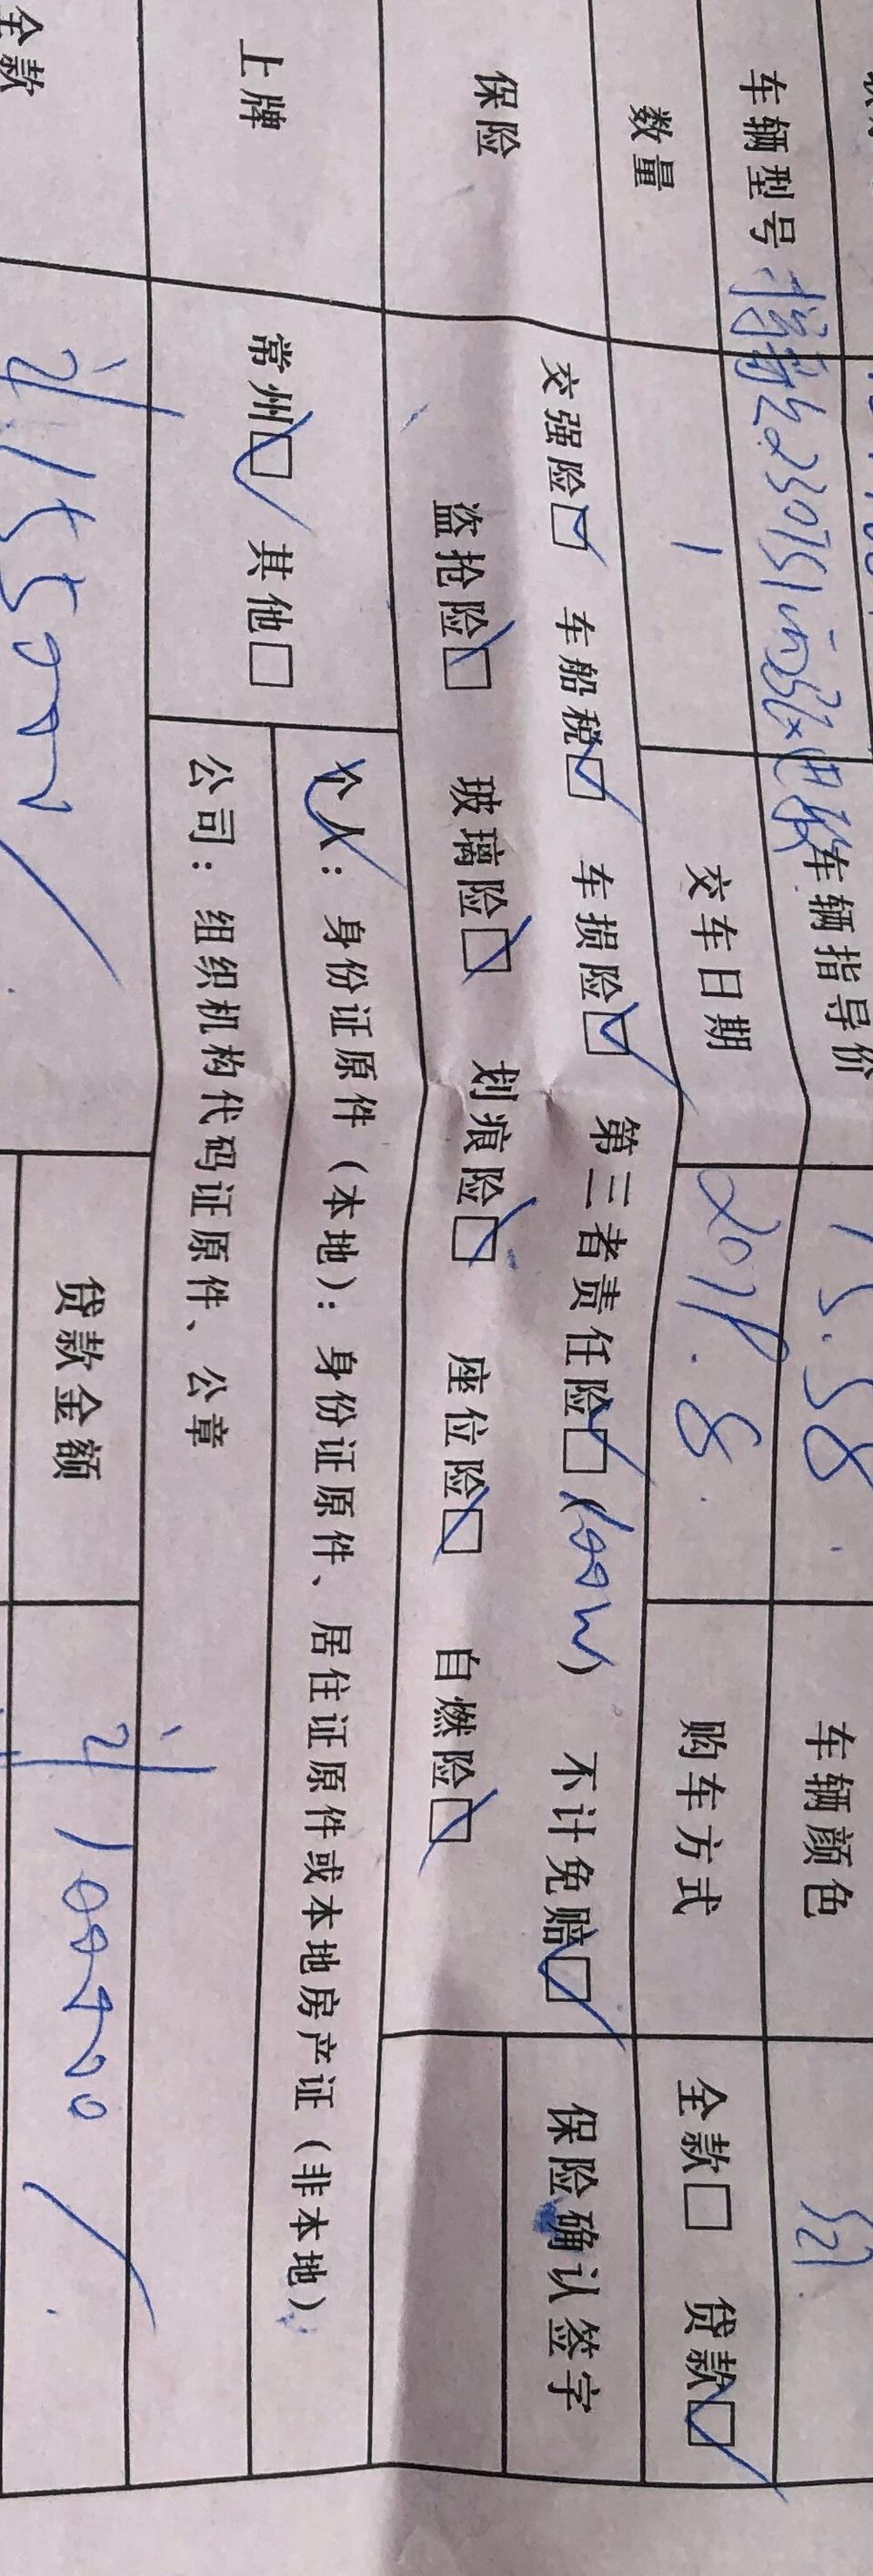 车辆型号 230TSI 车辆指导价 15.58 车辆颜色 红
数量 1 交车日期 2018.8. 购车方式 全款□ 贷款☑
保险 交强险☑ 车船税☑ 车损险☑ 第三者责任险☑(100W) 不计免赔☑ 保险确认签字
盗抢险☑ 玻璃险☑ 划痕险☑ 座位险☑ 自燃险☑
上牌 常州☑ 其他□ 个人：身份证原件（本地）：身份证原件、居住证原件或本地房产证（非本地）
公司：组织机构代码证原件、公章
全款 贷款金额